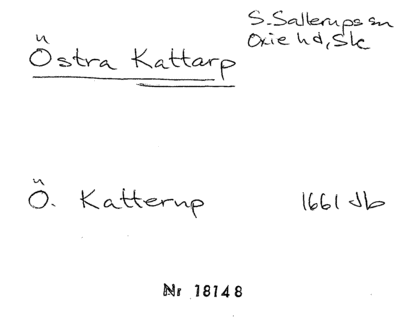 S. Sallerups sn
Oxie hd, Sk
Östra Kattarp
Ö. Katterup
1661 Jb
Nr 18148